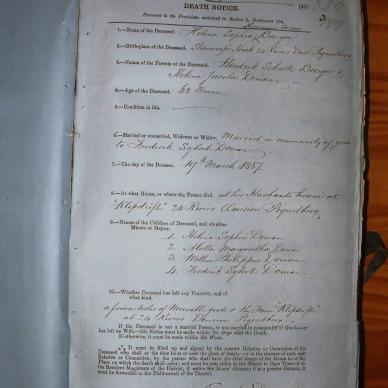 DEATH NOTICE.
Pursuant to the Provisions contained in Section 9, Ordinance 104.
1.—Name of the Deceased. Helena Sophia Burger
2.—Birth-place of the Deceased. 24 Rivers Piquetberg
3.—Names of the Parents of the Deceased. Hendrik Schalk Burger &
Helena Jacoba Doman
4.—Age of the Deceased. 68 Years
5.—Condition in life.
6.—Married or unmarried, Widower or Widow. Married in community of goods
to Frederik Sybert Doman
7.—The day of the Decease. 19th March 1887
8.—At what House, or where the Person died. at his Husbands house at
"Klipdrift" 24 Rivers Division Piquetberg
9.—Names of the Children of Deceased, and whether
Minors or Majors.
1. Helena Sophia Doman
2. Aletta Margaretha Doman
3. Willem Philippus Doman
4. Frederik Sybert Doman
10.—Whether Deceased has left any Property, and of
what kind.
a few articles of Movable on the Farm "Klipdrift"
at 24 Rivers Division Piquetberg
If the Deceased is not a married Person, or was married in community of Goods—or
has left no Will,—this Notice must be made within Six Days after the Death.
If otherwise, it must be made within Six Weeks.
It must be filled up and signed by the nearest Relative or Connection of the
Deceased who shall at the time be at or near the place of death,—or in the absence of such near
Relative or Connection, by the person who shall have the charge of the House in or the
Place on which the death shall occur; and must be sent to the Master's Office if in Cape Town or to
the Resident Magistrate of the District, if within Six Hours' distance; if a greater distance, it
must be forwarded to the Field-cornet of the District.